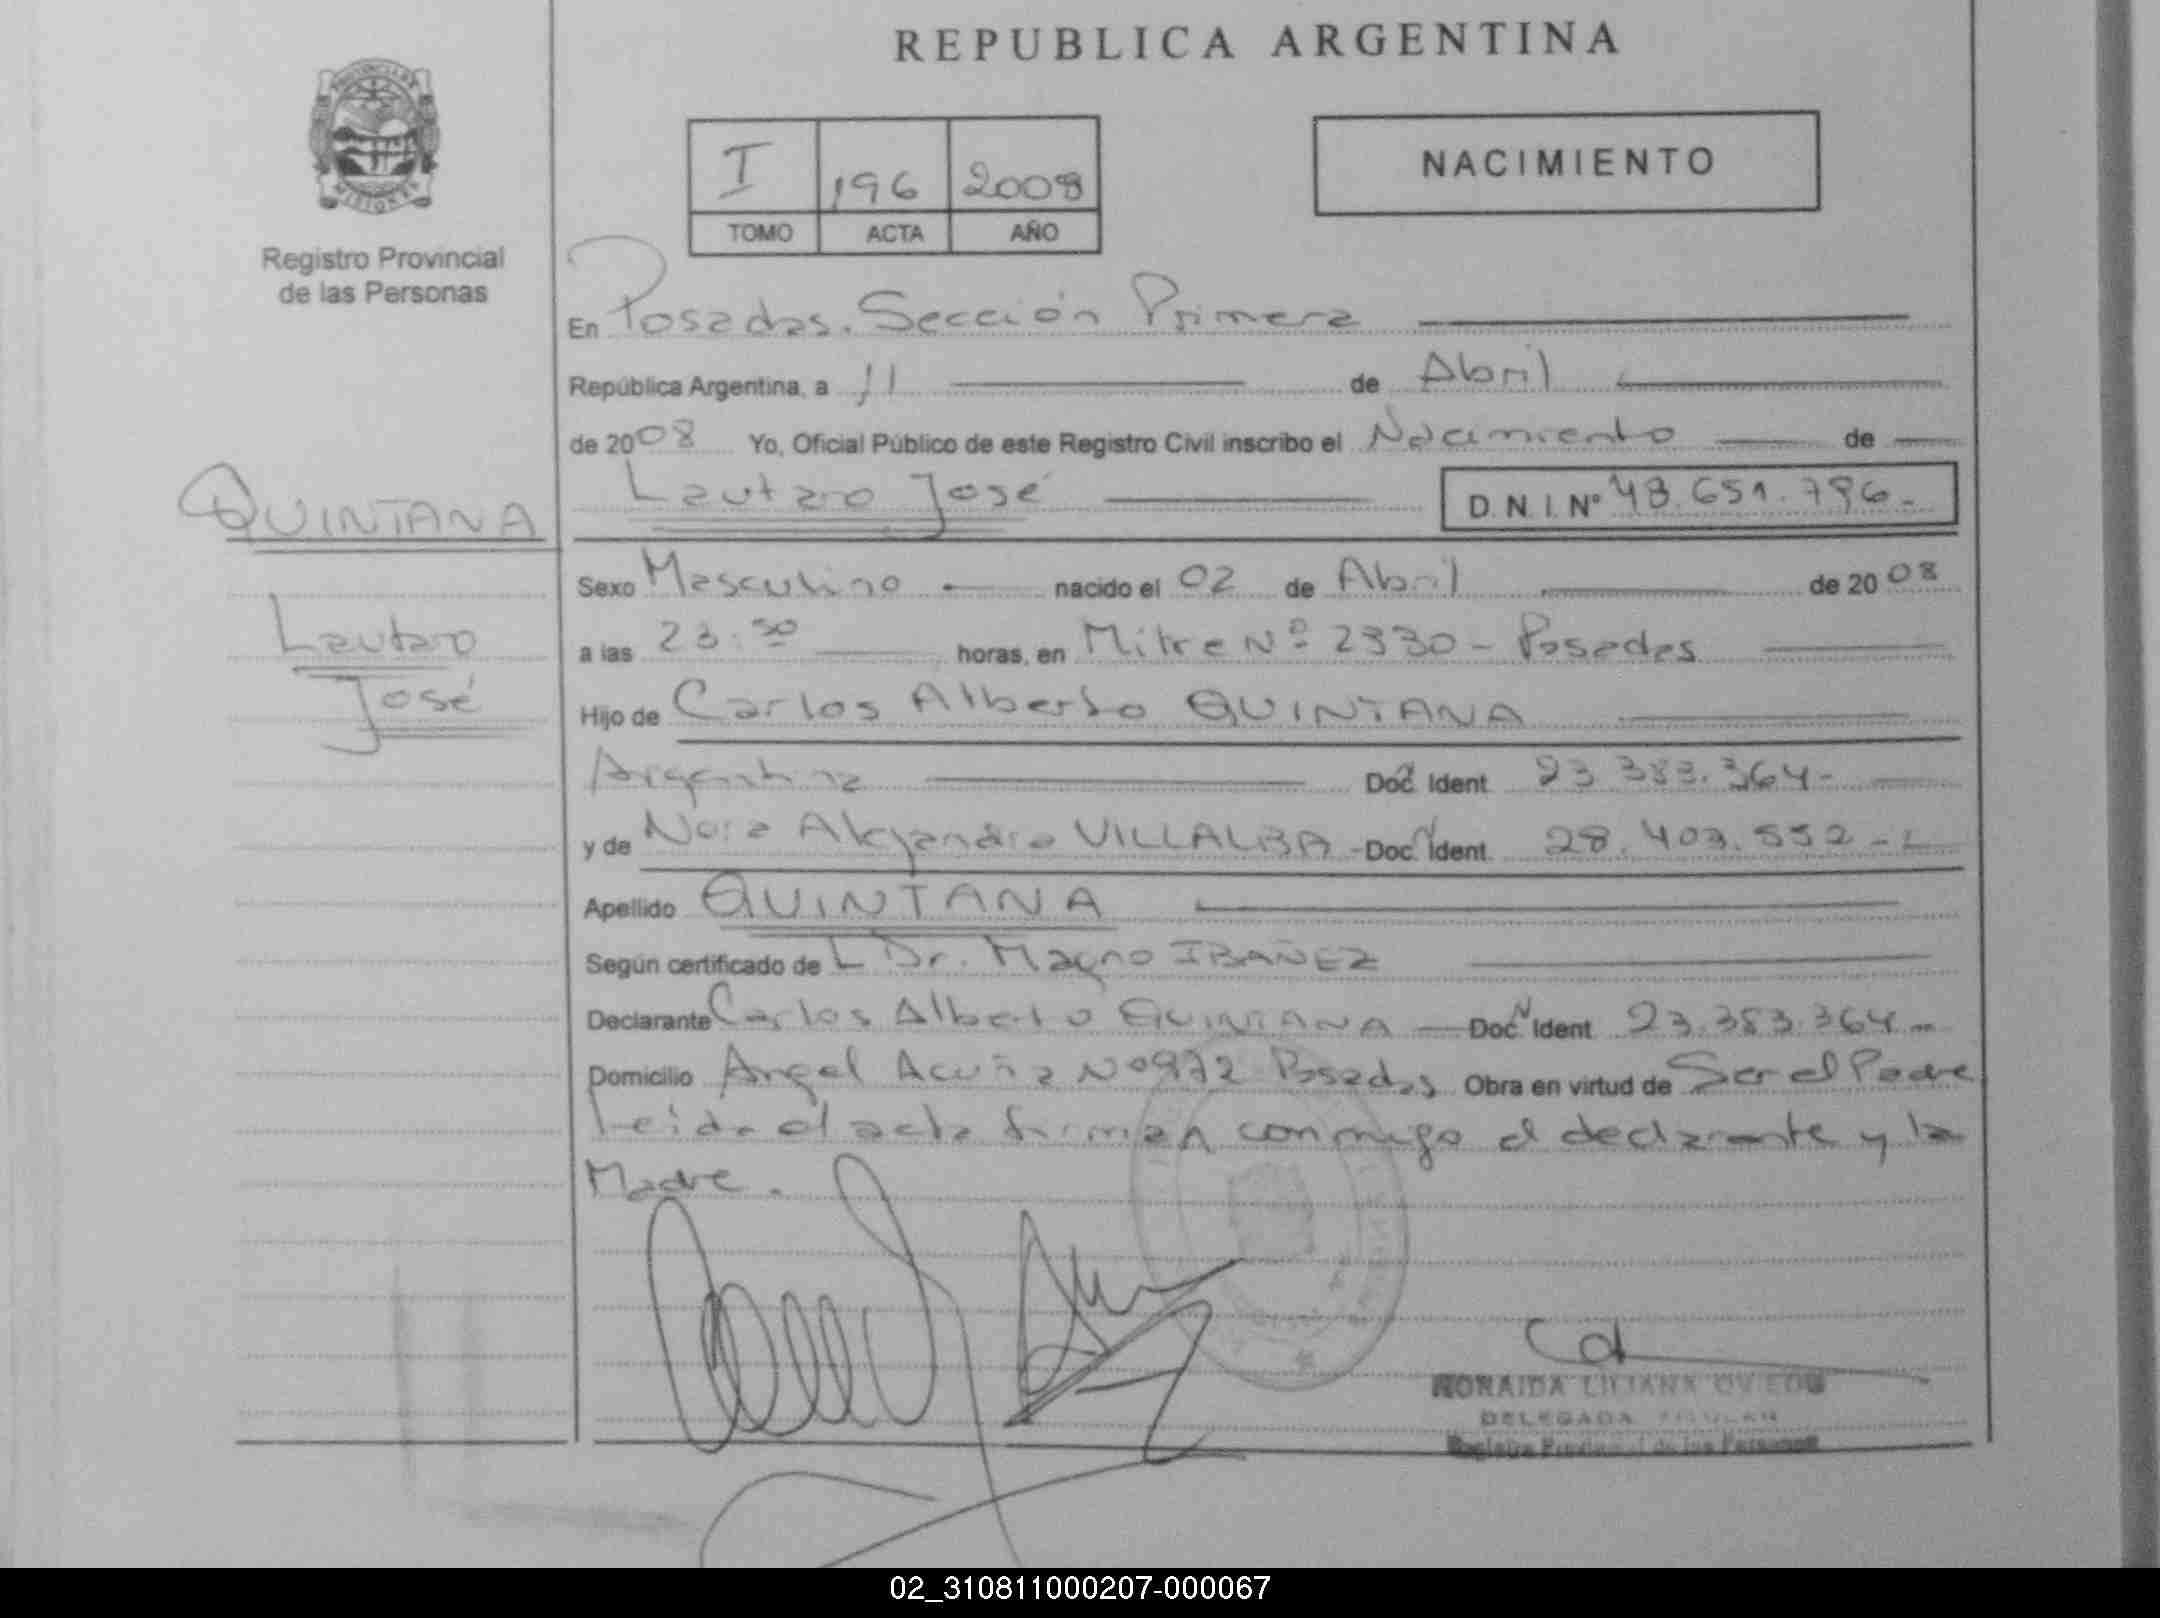 REPUBLICA ARGENTINA
PROVINCIA DE
MISIONES
Registro Provincial
de las Personas
I 196 2008
TOMO ACTA AÑO
NACIMIENTO
En Posadas. Sección Primera
República Argentina, a 11 de Abril
de 2008 Yo, Oficial Público de este Registro Civil inscribo el Nacimiento de
Lautaro José D.N.I. Nº 48.651.796.-
QUINTANA
Lautaro
José
Sexo Masculino nacido el 02 de Abril de 2008
a las 23:30 horas, en Mitre Nº 2330 - Posadas
Hijo de Carlos Alberto QUINTANA
Argentina Doc. Ident. 23.383.364-
y de Nora Alejandra VILLALBA - Doc. Ident. 28.403.552 -
Apellido QUINTANA
Según certificado de L Dr. Magno IBAÑEZ
Declarante Carlos Alberto QUINTANA Doc. Ident 23.383.364-
Domicilio Angel Acuña Nº 972 Posadas Obra en virtud de Ser el Padre
Leida el acta firman conmigo el declarante y la
Madre.
NORAIDA LILIANA OVIEDO
DELEGADA TITULAR
Registro Provincial de las Personas
02_310811000207-000067